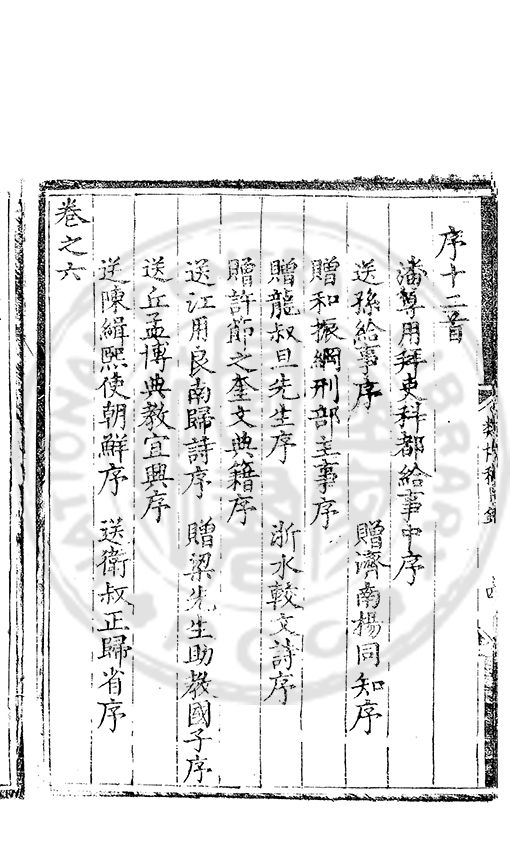 序十二首
潘尊用拜吏科都給事中序
送孫給事序 贈濟南楊同知序
贈和振綱刑部主事序
贈龍叔旦先生序 浙水較文詩序
贈許節之奎文典籍序
送江用良南歸詩序 贈梁先生助教國子序
送丘孟博典教宜興序
送陳緝熙使朝鮮序 送衛叔正歸省序
卷之六